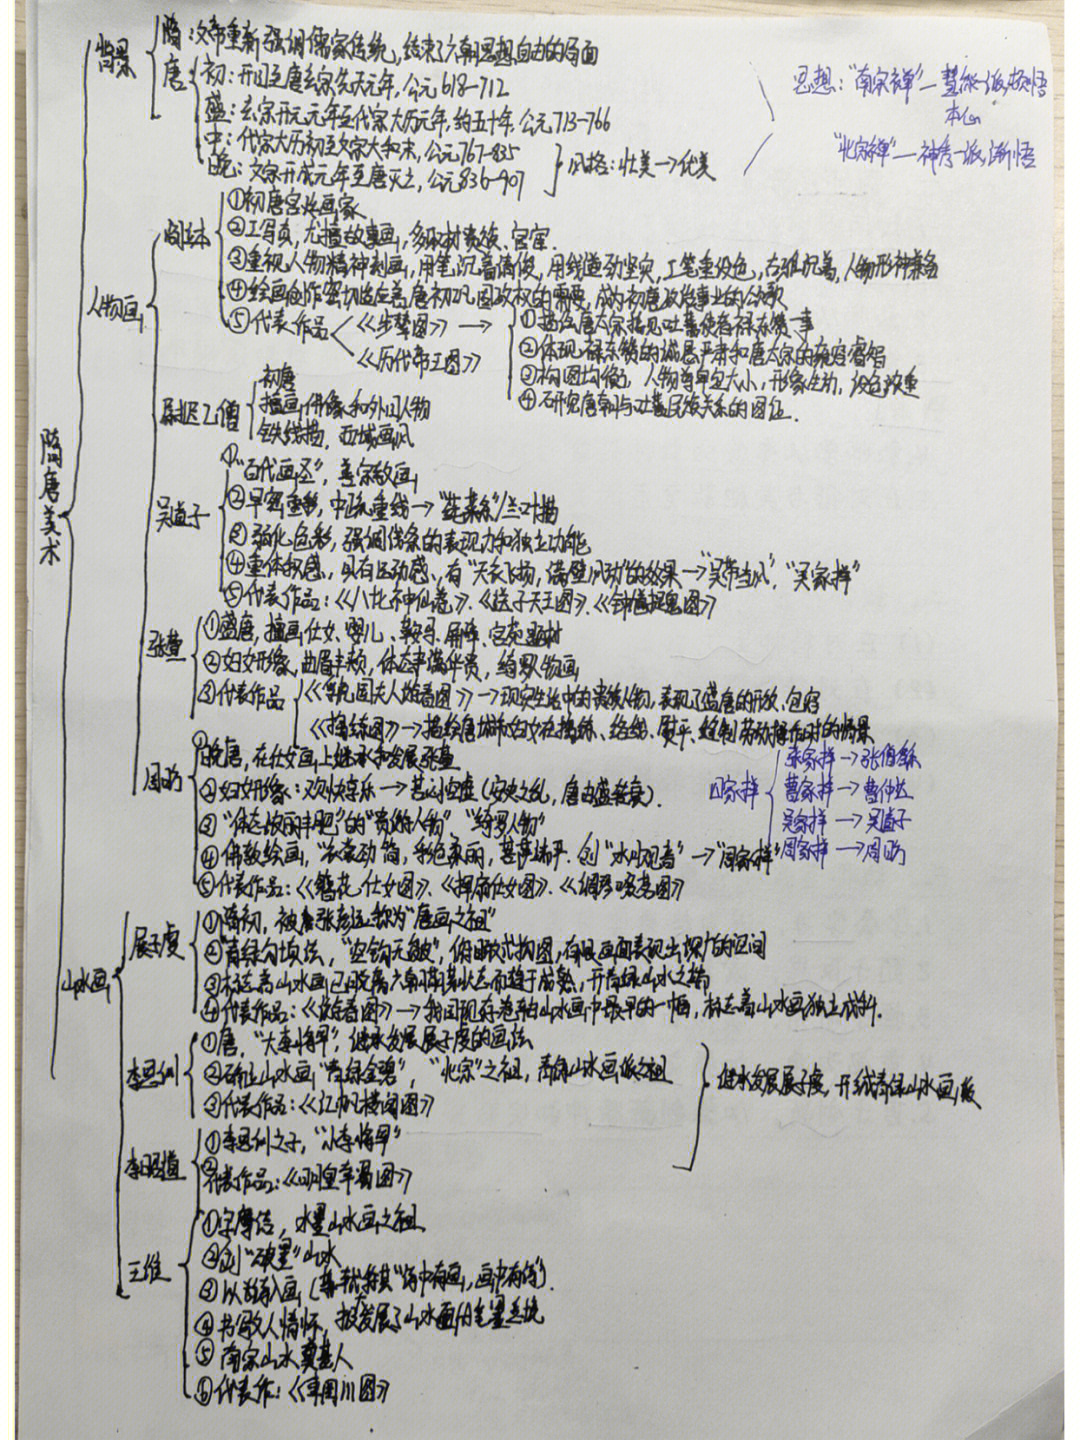 隋唐美术
背景
隋：文帝重新强调儒家传统，结束了六朝思想自由的局面
唐
初：开国至唐玄宗先天元年，公元618-712
盛：玄宗开元元年至代宗大历元年，约五十年，公元713-766
中：代宗大历初至文宗大和末，公元767-835
晚：文宗开成元年至唐灭亡，公元836-907
风格：壮美→优美
思想："南宗禅"—慧能一派，顿悟
"北宗禅"—神秀一派，渐悟
人物画
阎立本
①初唐宫廷画家
②工写真，尤擅故事画，多取材贵族、宫宦.
③重视人物精神刻画，用笔沉着清俊，用线遒劲坚实，工笔重设色，古雅沉着，人物形神兼备
④绘画创作密切适应着唐初巩固政权的需要，成为初唐政治事业的公歌
⑤代表作品
《步辇图》→
①描绘唐太宗接见吐蕃使者禄东赞一事
②体现禄东赞的诚恳严肃和唐太宗的雍容睿智
③构图均衡，人物尊卑定大小，形象生动，设色浓重
④研究唐朝与吐蕃民族关系的图证.
《历代帝王图》
尉迟乙僧
初唐
擅画佛像和外国人物
铁线描，西域画风
吴道子
①"百代画圣"，善宗教画
②早密重彩，中疏重线→"莼菜条"/兰叶描
③弱化色彩，强调线条的表现力和独立功能
④重体积感，具有运动感，有"天衣飞扬，满壁风动"的效果→"吴带当风"、"吴家样"
⑤代表作品：《八十七神仙卷》、《送子天王图》、《钟馗捉鬼图》
张萱
①盛唐，擅画仕女、婴儿、鞍马、屏障、宫苑题材
②妇女形象，曲眉丰颊，体态丰满华贵，绮罗人物画
③代表作品
《虢国夫人游春图》→现实生活中的贵族人物，表现了盛唐的开放、包容
《捣练图》→描绘唐城市妇女在捣练、络线、熨平、缝制劳动操作时的情景
周昉
①晚唐，在仕女画上继承和发展张萱
②妇女形象：欢快享乐→苦闷空虚（安史之乱，唐由盛转衰）.
③"体态放丽丰肥"的"贵游人物""绮罗人物"
④佛教绘画，"衣裳劲简，彩色柔丽，菩萨端严，创"水月观音"→"周家样"
⑤代表作品：《簪花仕女图》、《挥扇仕女图》、《调琴啜茗图》
四家样
张家样→张僧繇
曹家样→曹仲达
吴家样→吴道子
周家样→周昉
山水画
展子虔
①隋初，被唐张彦远称为"唐画之祖"
②"青绿勾填法，"空钩无皴"，俯瞰式构图，有限画面表现出深广的空间
③标志着山水画已脱离六朝萌芽状态而趋于成熟，开青绿山水之端
④代表作品：《游春图》→我国现存卷轴山水画中最早的一幅，标志着山水画独立成科.
李思训
①唐，"大李将军"，继承发展展子虔的画法
②确立山水画"青绿金碧"，"北宗"之祖，青绿山水画派之祖
③代表作品：《江帆楼阁图》
李昭道
①李思训之子，"小李将军"
②代表作品：《明皇幸蜀图》
继承发展展子虔，开线青绿山水画派
王维
①字摩诘，水墨山水画之祖
②创"破墨"山水
③以诗入画（苏轼称其"诗中有画，画中有诗"）.
④书写文人情怀，发展了山水画的笔墨意境
⑤南宗山水奠基人
⑥代表作：《辋川图》